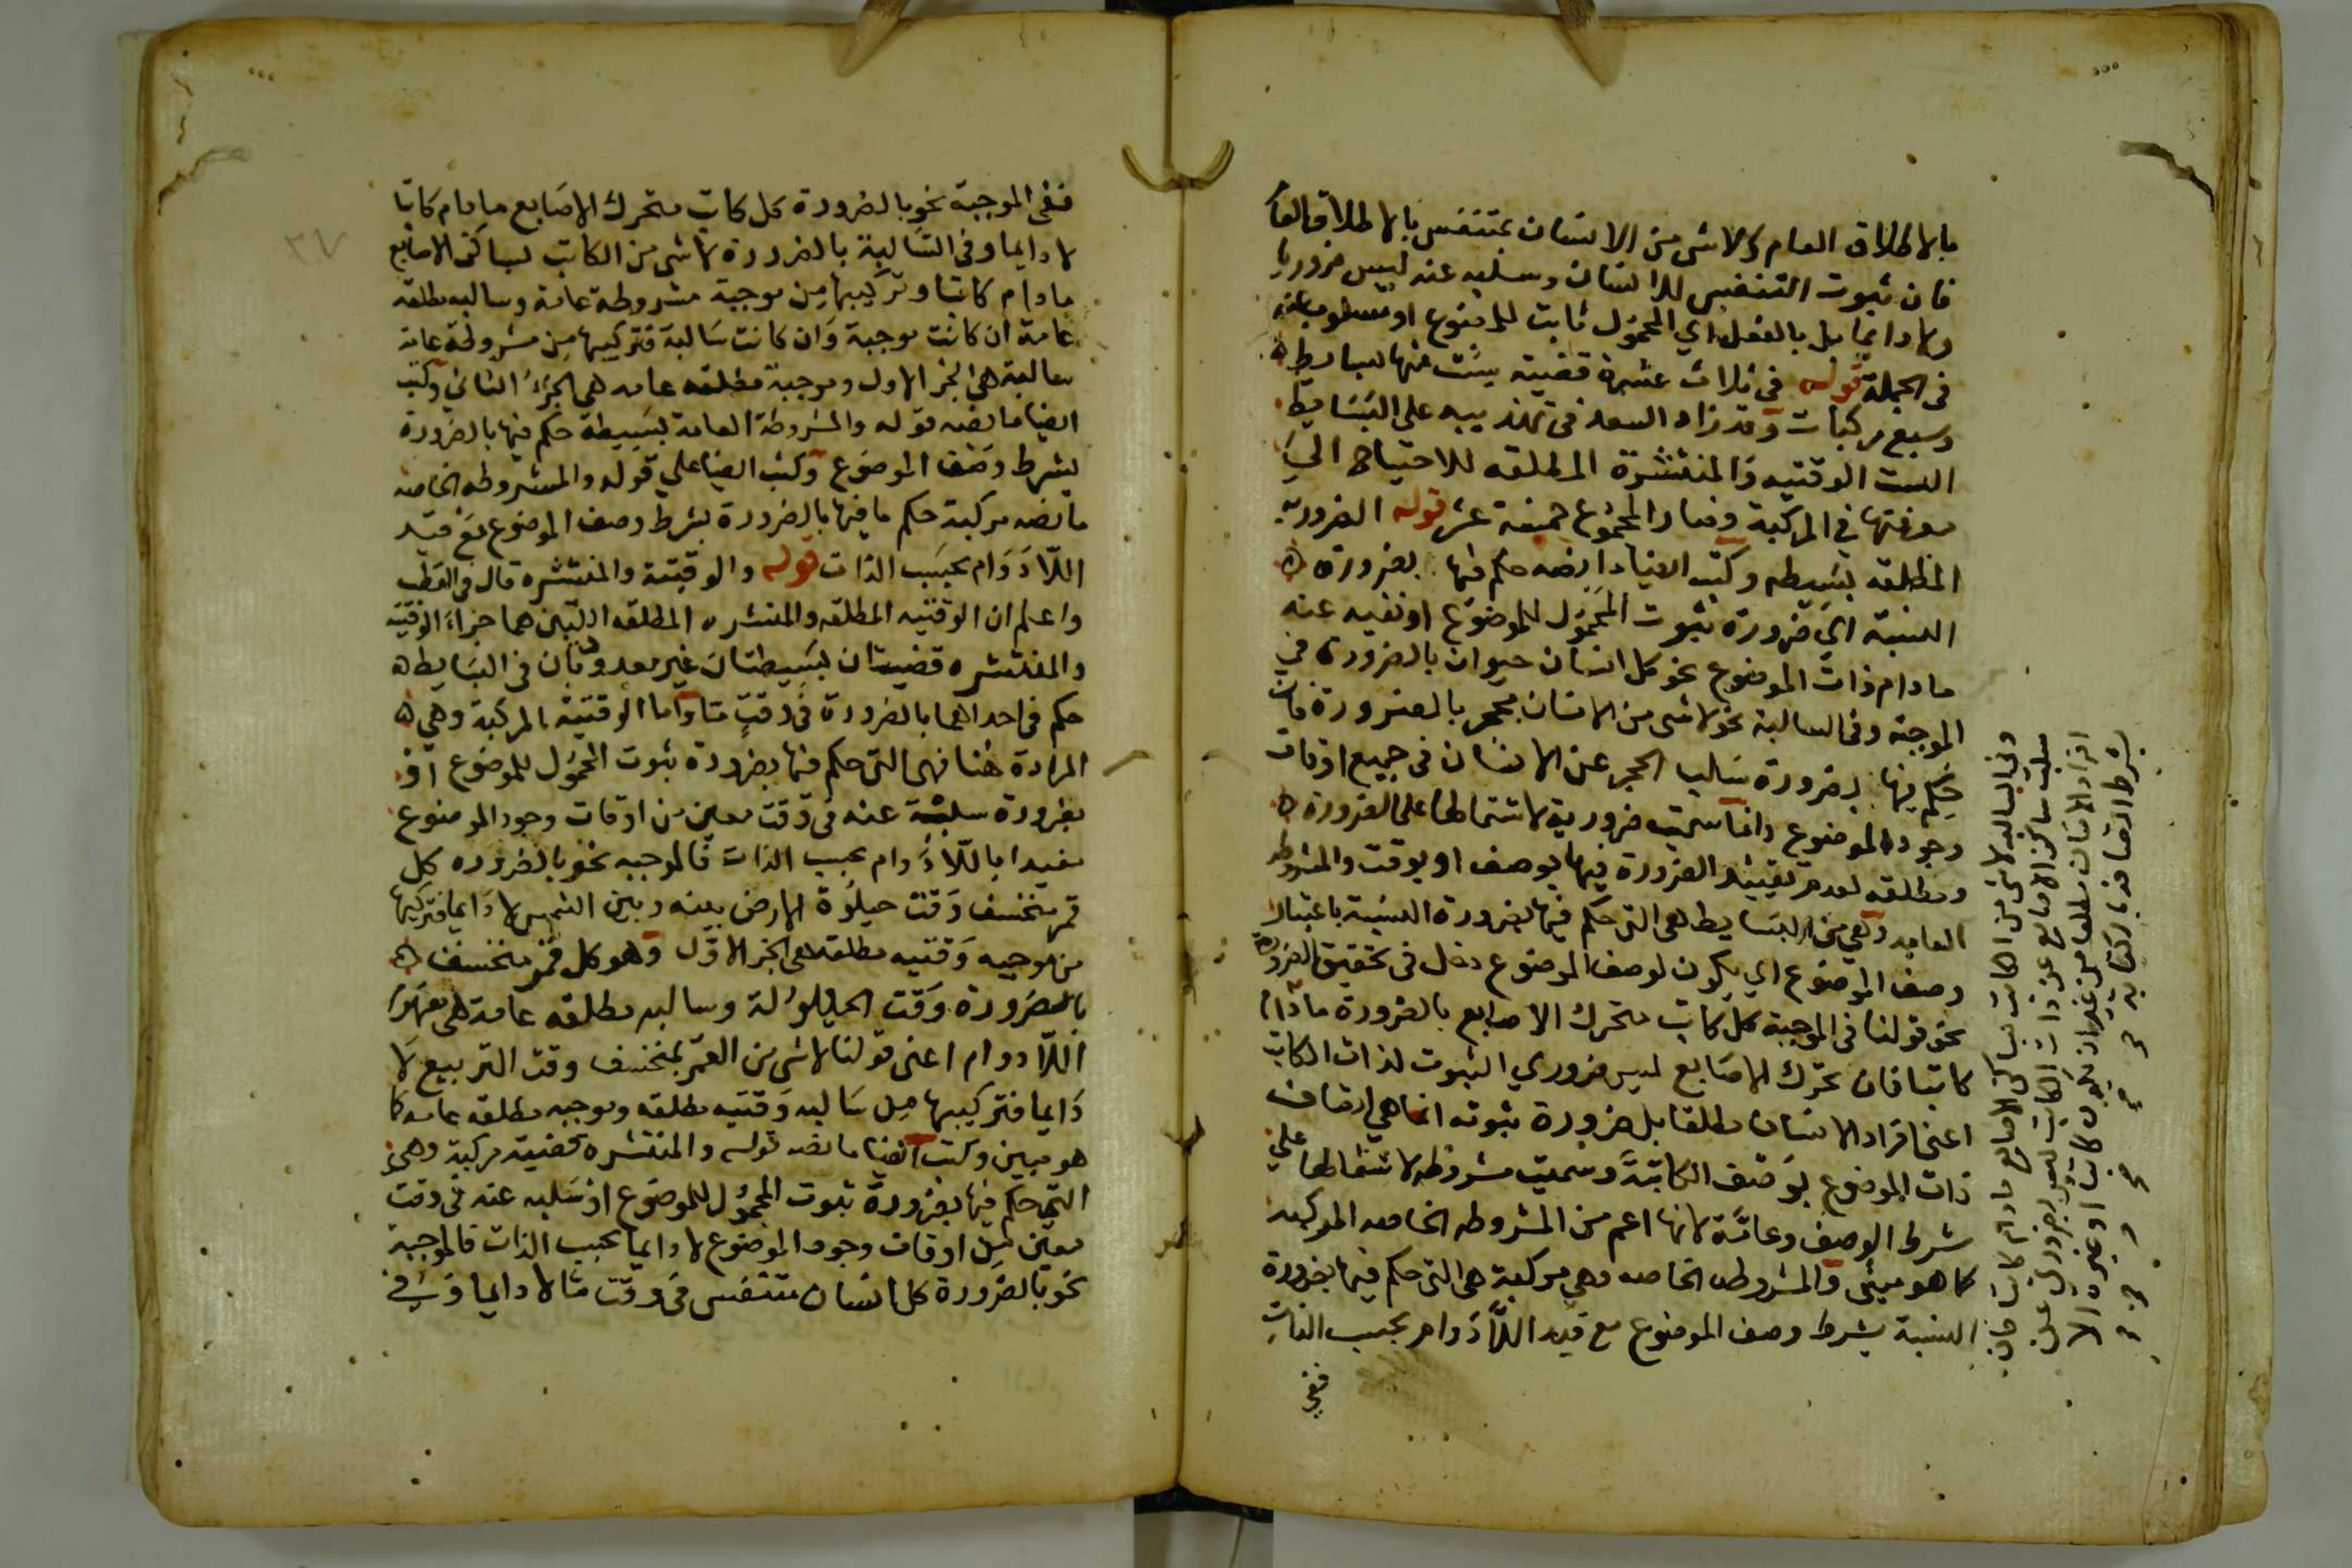 بالاطلاق العام ولاشى من الانسان بمتنفس بالاطلاق العام
فان ثبوت التنفس للانسان وسلبه عنه ليس ضروريا
ولا دايما بل بالفعل اي المحمول ثابت للموضوع او مسلوب عنه
فى الجملة قوله فى ثلاث عشرة قضية ست منها بسايط
وسبع مركبات وقد زاد السعد فى تهذيبه على البسايط
الست الوقتيه والمنتشرة المطلقه للاحتياج الي
معرفتها في المركبة وصار المجموع خمسة عشر قوله الضرورية
المطلقه بسيطه وكتب ايضا ما نصه حكم فيها بضرورة
النسبة اي ضرورة ثبوت المحمول للموضوع او نفيه عنه
ما دام ذات الموضوع نحو كل انسان حيوان بالضرورة في
الموجبة وفى السالبة نحو لاشى من الانسان بحجر بالضرورة فان
حكم فيها بضرورة سلب الحجر عن الانسان فى جميع اوقات
وجود الموضوع وانما سميت ضرورية لاشتمالها على الضرورة
ومطلقه لعدم تقييد الضرورة فيها بوصف او بوقت والمشروطه
العامه وهي من البسايط هى التى حكم فيها بضرورة النسبة باعتبار
وصف الموضوع اي يكون لوصف الموضوع دخل فى تحقيق الضرورة
نحو قولنا فى الموجبة كل كاتب متحرك الاصابع بالضرورة مادام
كاتبا فان تحرك الاصابع ليس ضروري الثبوت لذات الكاتب
اعنى افراد الانسان مطلقا بل ضرورة ثبوته انما هي اتصاف
ذات الموضوع بوصف الكاتبة وسميت مشروطه لاشتمالها علي
شرط الوصف وعامة لانها اعم من المشروطه الخاصه المركبه
كما هو مبين والمشروطه الخاصه وهي مركبة هى التى حكم فيها بضرورة
النسبة بشرط وصف الموضوع مع قيد اللادوام بحسب الذات
ففي
وفى السالبه لاشى من الكاتب بساكن الاصابع مادام كاتبا فان
سلب ساكن الاصابع عن ذات الكاتب ليس بضروري على
افراد الانسان مطلقا من غير ان يكون كاتبا او غيره الا
بشرط اتصافه بالكتابة
ففى الموجبة نحو بالضرورة كل كاتب متحرك الاصابع مادام كاتبا
لا دايما وفى السالبة بالضرورة لاشى من الكاتب بساكن الاصابع
مادام كاتبا وتركيبها من موجبة مشروطة عامة وسالبه مطلقه
عامة ان كانت موجبة وان كانت سالبة فتركيبها من مشروطة عامة
سالبة هى الجز الاول وموجبة مطلقه عامه هى الجزؤ الثاني وكتب
ايضا ما نصه قوله والمشروطة العامة بسيطة حكم فيها بالضرورة
بشرط وصف الموضوع وكتب ايضا علي قوله والمشروطه الخاصه
ما نصه مركبة حكم ما فيها بالضرورة بشرط وصف الموضوع مع قيد
اللادوام بحسب الذات قوله والوقتية والمنتشره قال فى القطب
واعلم ان الوقتيه المطلقه والمنتشره المطلقه اللتين هما جزاء الوقتية
والمنتشره قضيتان بسيطتان غير معدودتان فى البسايط
حكم فى احداهما بالضرورة فى وقتٍ ما واما الوقتية المركبة وهي
المرادة هنا فهى التى حكم فيها بضرورة ثبوت المحمول للموضوع او
بضرورة سلبه عنه فى وقت معين من اوقات وجود الموضوع
مقيدا باللادوام بحسب الذات فالموجبه نحو بالضروره كل
قمر منخسف وقت حيلولة الارض بينه وبين الشمس لا دايما فتركيبها
من موجبه وقتيه مطلقه هى الجز الاول وهو كل قمر منخسف
بالضرورة وقت الحيلولة وسالبه مطلقه عامة هى مفهوم
اللادوام اعنى قولنا لاشى من القمر بمنخسف وقت التربيع لا
دايما فتركيبها من سالبه وقتيه مطلقه وموجبه مطلقه عامه كما
هو مبين وكتب ايضا ما نصه قوله والمنتشره قضية مركبة وهي
التى حكم فيها بضرورة ثبوت المحمول للموضوع او سلبه عنه فى وقت
معين من اوقات وجود الموضوع لا دايما بحسب الذات فالموجبة
نحو بالضرورة كل انسان متنفس فى وقت ما لا دايما وفي